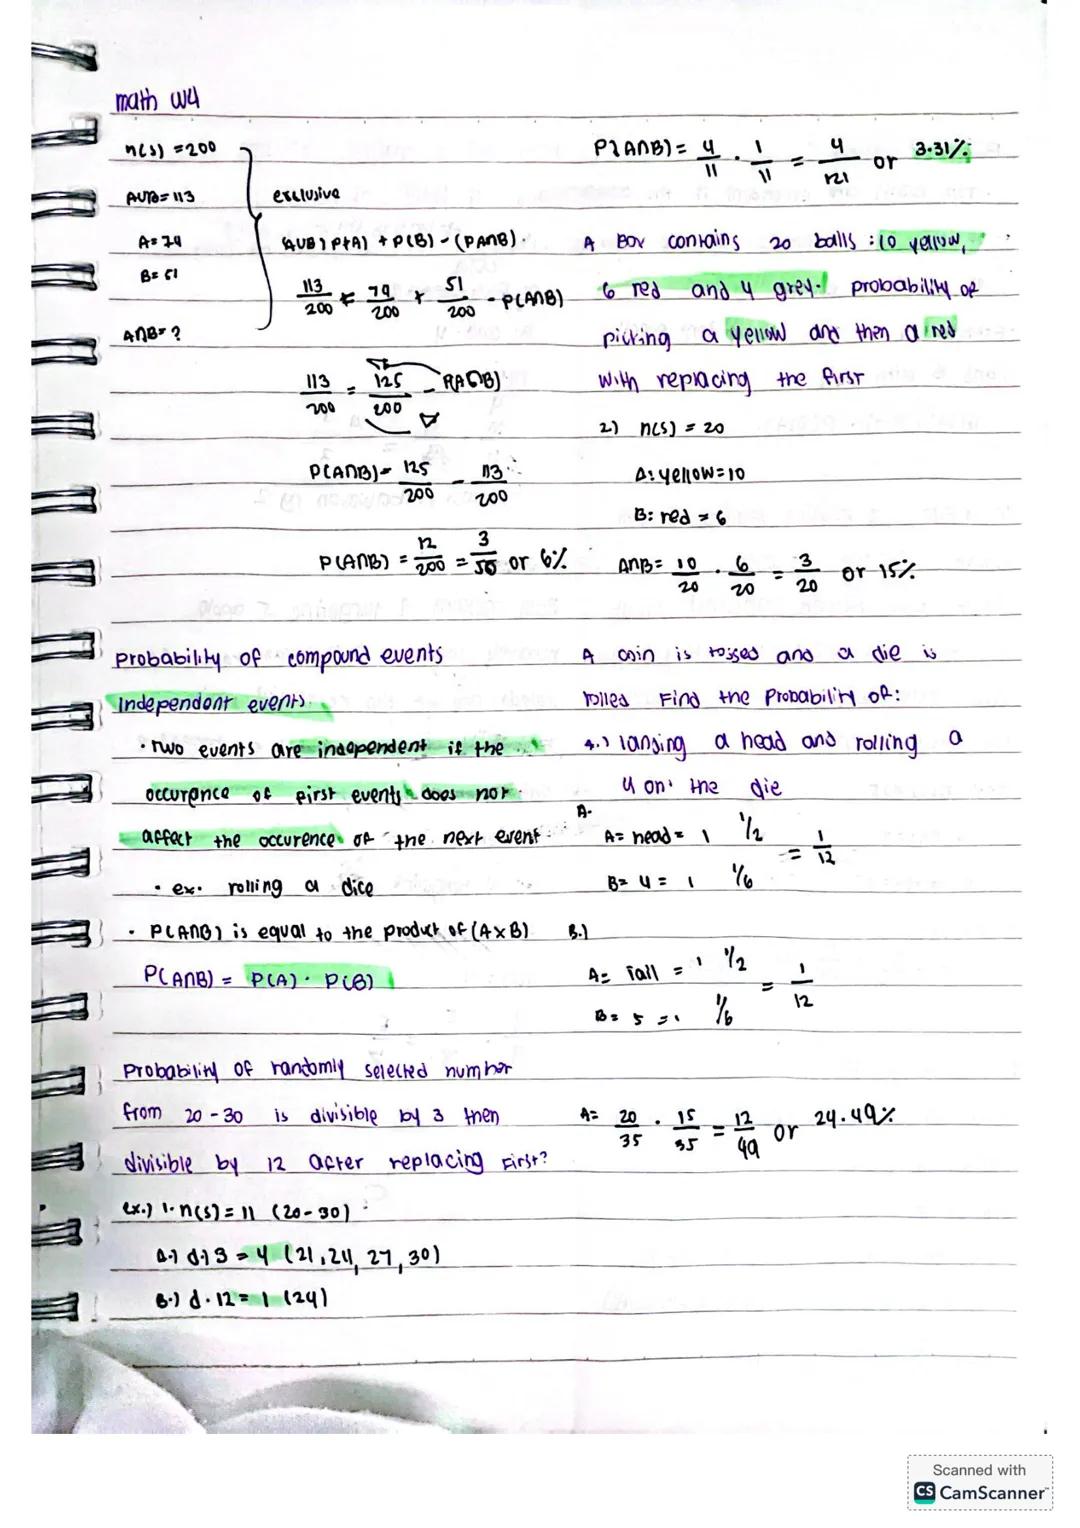 math w4
n(s) = 200
AUB = 113
A = 74
B = 51
A∩B = ?
exclusive
AUB) P(A) + P(B) - (PA∩B)
113/200 = 74/200 + 51/200 - P(A∩B)
113/200 = 125/200 - P(A∩B)
P(A∩B) = 125/200 - 113/200
P(A∩B) = 12/200 = 3/50 or 6%
Probability of compound events
Independent events
• Two events are independent if the
occurence of first events does not
affect the occurence of the next event
• ex. rolling a dice
• P(A∩B) is equal to the product of (A×B)
P(A∩B) = P(A) · P(B)
Probability of randomly selected number
from 20 - 30 is divisible by 3 then
divisible by 12 after replacing first?
ex.) 1. n(s) = 11 (20 - 30)
A.) d.) 3 = 4 (21, 24, 27, 30)
B.) d. 12 = 1 (24)
P(A∩B) = 4/11 · 1/11 = 4/121 or 3.31%
A Box contains 20 balls : 10 yellow,
6 red and 4 grey. probability of
picking a yellow and then a red
with replacing the first
2.) n(s) = 20
A: yellow = 10
B: red = 6
A∩B = 10/20 · 6/20 = 3/20 or 15%
A coin is tossed and a die is
rolled Find the Probability of:
landing a head and rolling a
4 on the die
A.
A = head = 1 1/2
= 1/12
B = 4 = 1 1/6
B.)
A = Tail = 1 1/2
= 1/12
B = 5 = 1 1/6
A = 20/35 · 15/35 = 12/49 or 24.49%
Scanned with
CS CamScanner